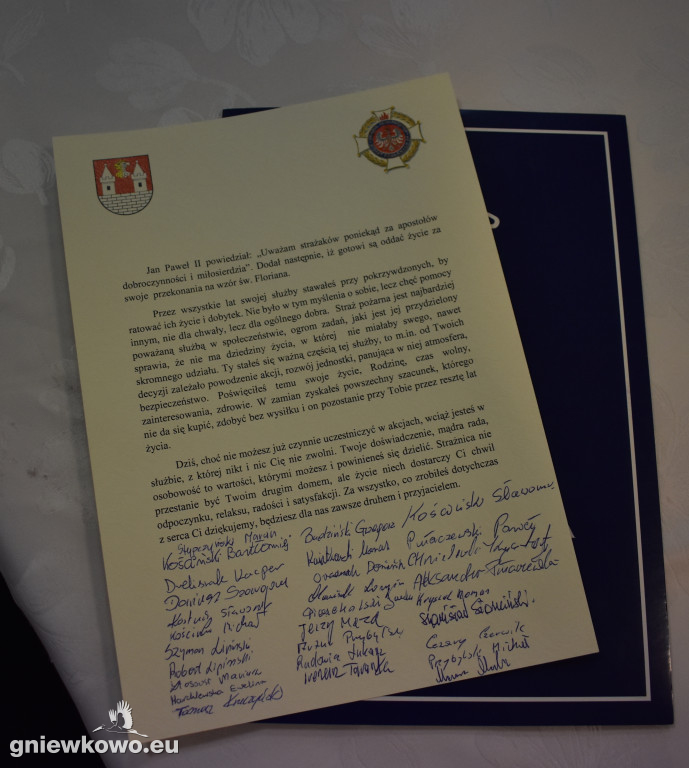 Jan Paweł II powiedział: „Uważam strażaków poniekąd za apostołów
dobroczynności i miłosierdzia”. Dodał następnie, iż gotowi są oddać życie za
swoje przekonania na wzór św. Floriana.
Przez wszystkie lat swojej służby stawałeś przy pokrzywdzonych, by
ratować ich życie i dobytek. Nie było w tym myślenia o sobie, lecz chęć pomocy
innym, nie dla chwały, lecz dla ogólnego dobra. Straż pożarna jest najbardziej
poważaną służbą w społeczeństwie, ogrom zadań, jaki jest jej przydzielony
sprawia, że nie ma dziedziny życia, w której nie miałaby swego, nawet
skromnego udziału. Ty stałeś się ważną częścią tej służby, to m.in. od Twoich
decyzji zależało powodzenie akcji, rozwój jednostki, panująca w niej atmosfera,
bezpieczeństwo. Poświęciłeś temu swoje życie, Rodzinę, czas wolny,
zainteresowania, zdrowie. W zamian zyskałeś powszechny szacunek, którego
nie da się kupić, zdobyć bez wysiłku i on pozostanie przy Tobie przez resztę lat
życia.
Dziś, choć nie możesz już czynnie uczestniczyć w akcjach, wciąż jesteś w
służbie, z której nikt i nic Cię nie zwolni. Twoje doświadczenie, mądra rada,
osobowość to wartości, którymi możesz i powinieneś się dzielić. Strażnica nie
przestanie być Twoim drugim domem, ale życie niech dostarczy Ci chwil
odpoczynku, relaksu, radości i satysfakcji. Za wszystko, co zrobiłeś dotychczas
z serca Ci dziękujemy, będziesz dla nas zawsze druhem i przyjacielem.
Kościński Bartłomiej
Kacper
Dariusz
Kościński Michał
Szymon Lipiński
Robert Lipiński
Mariusz
Ewelina
Tomasz
Grzegorz
Dominik
Jerzy
Łukasz
Ireneusz
Kościński Sławomir
Paweł
Krzysztof
Aleksandra
Stanisław
Cezary
Przybylski Michał
gniewkowo.eu